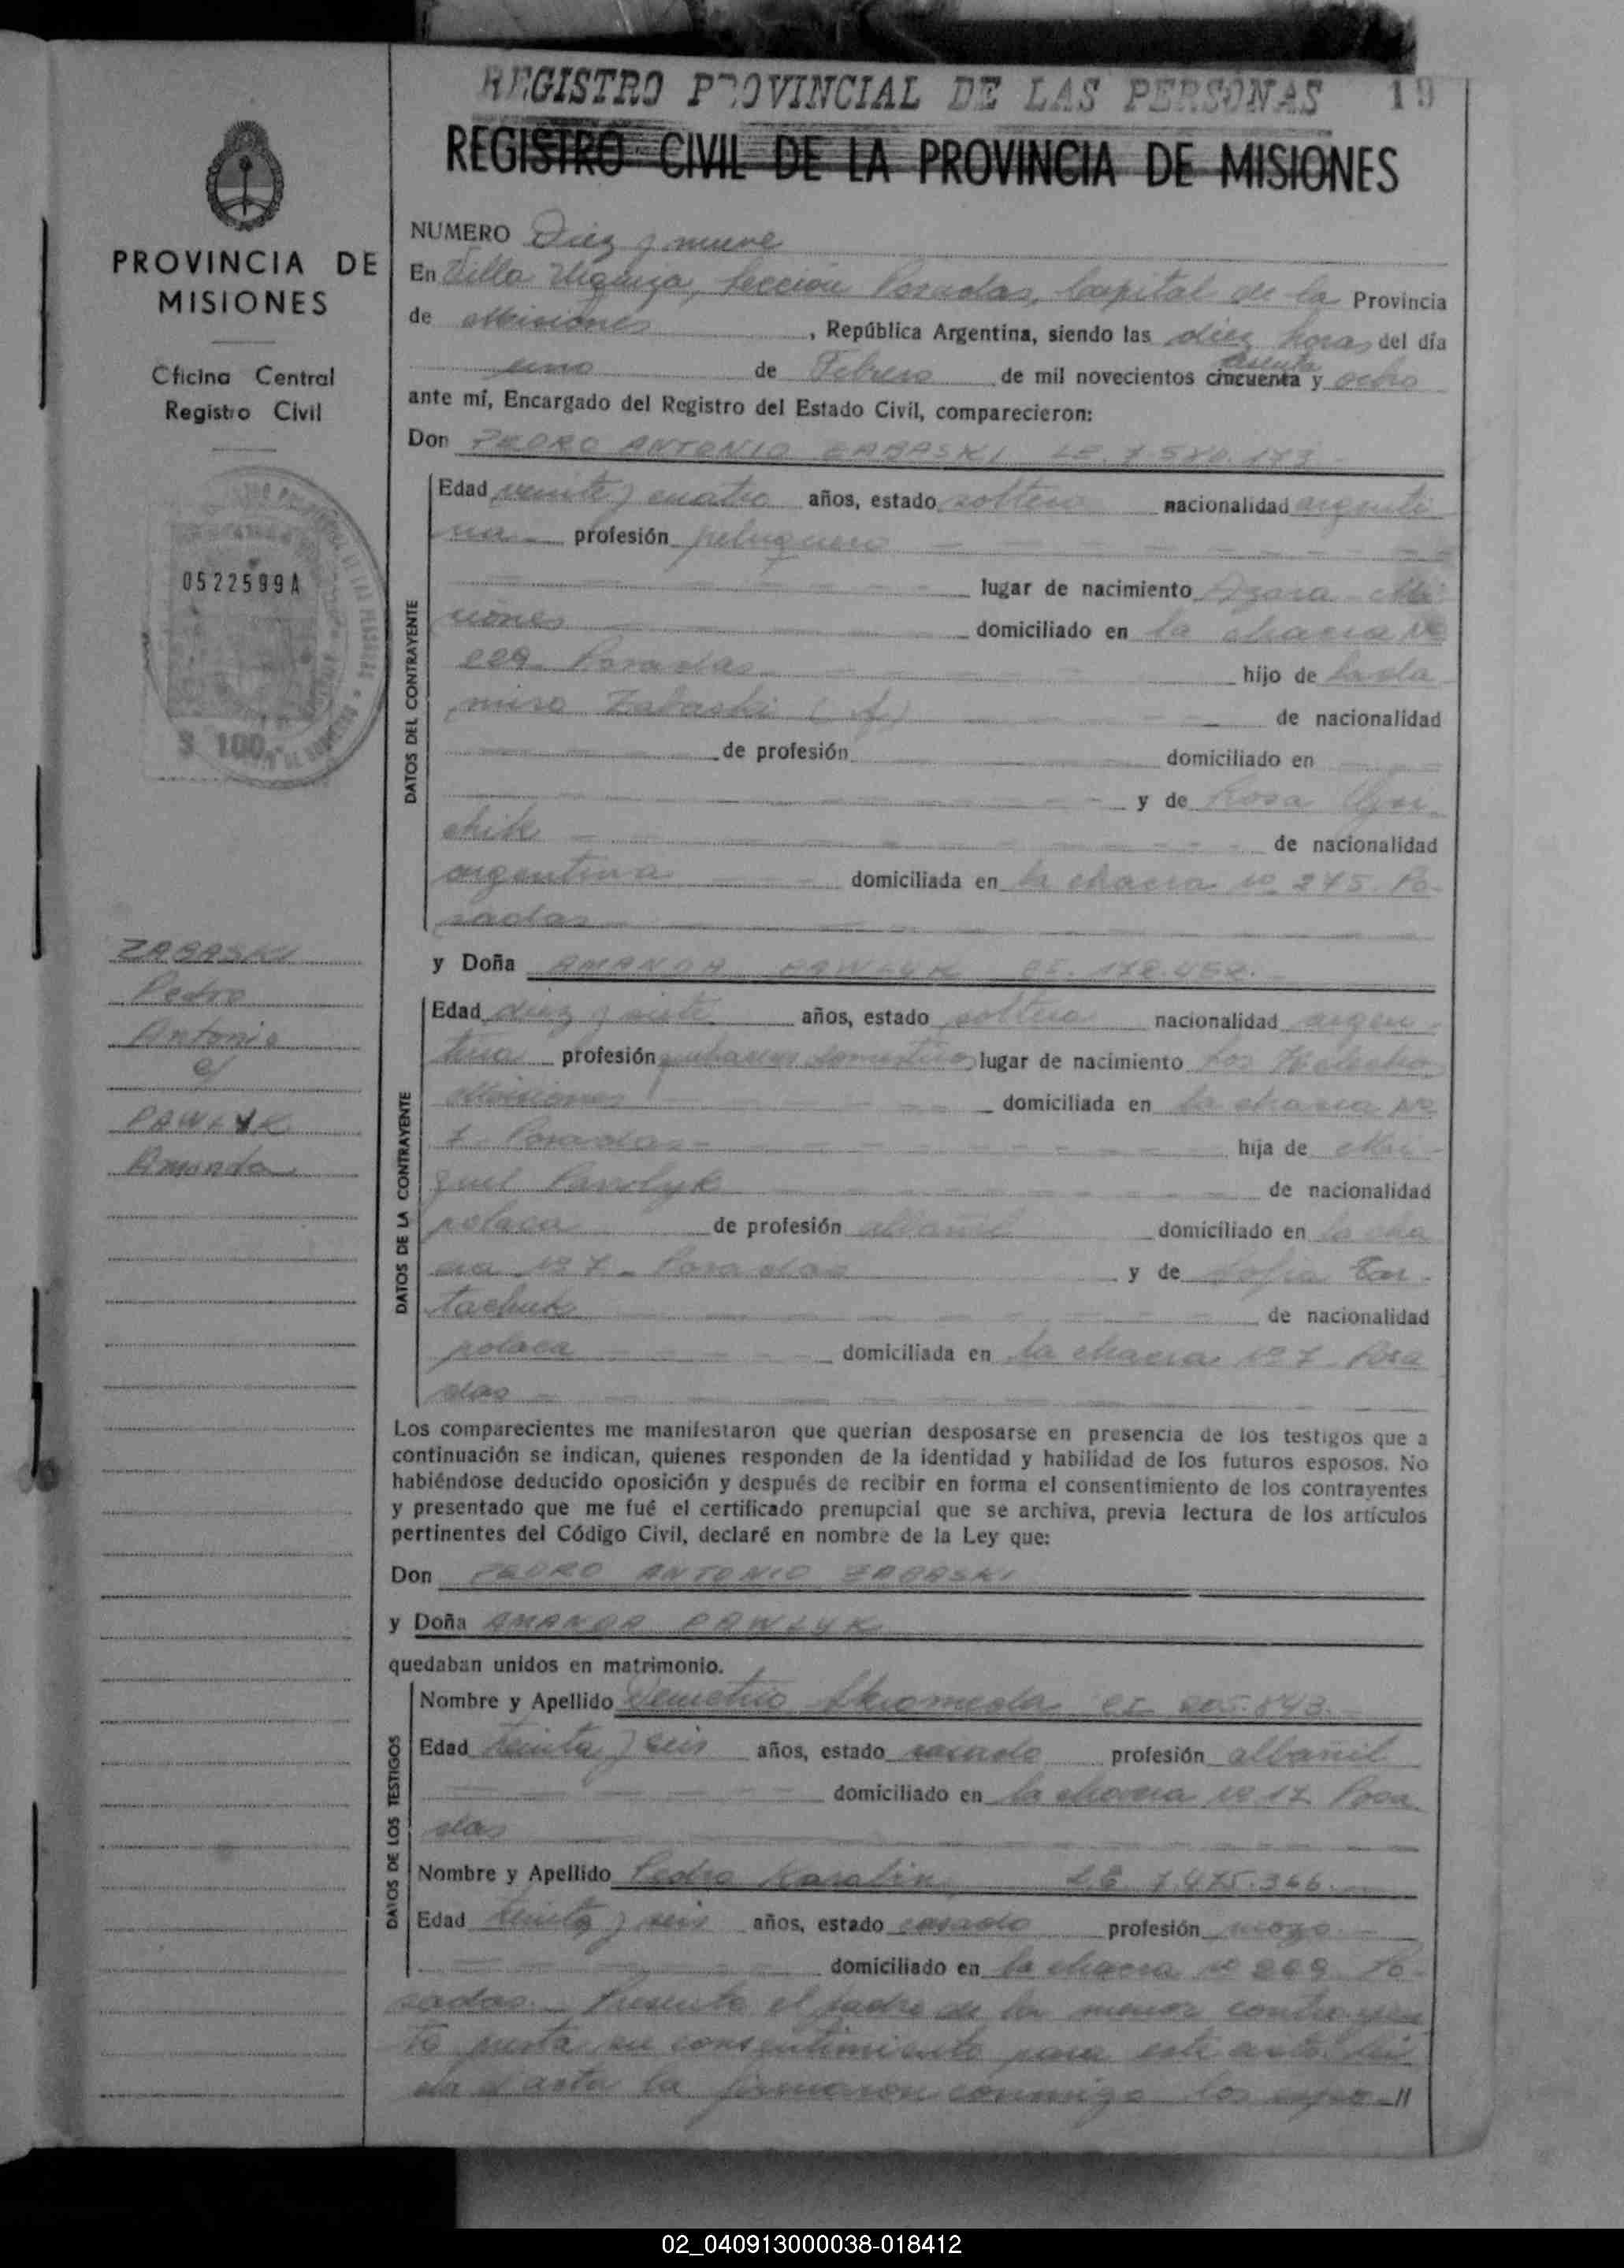 REGISTRO PROVINCIAL DE LAS PERSONAS 19
REGISTRO CIVIL DE LA PROVINCIA DE MISIONES
PROVINCIA DE
MISIONES
Oficina Central
Registro Civil
0522599A
$ 100
ZABASKI
Pedro
Antonio
c/
PAWLYK
Amanda
NUMERO Diez y nueve
En Villa Urquiza, Sección Posadas, Capital de la Provincia
de Misiones , República Argentina, siendo las diez horas del día
uno de Febrero de mil novecientos cincuenta sesenta y ocho
ante mí, Encargado del Registro del Estado Civil, comparecieron:
Don PEDRO ANTONIO ZABASKI LE.
DATOS DEL CONTRAYENTE
Edad veinte y cuatro años, estado soltero nacionalidad argenti
na profesión peluquero
lugar de nacimiento Azara - Mi
siones domiciliado en la chacra Nº
Posadas hijo de Ladis
Zabaski (f) de nacionalidad
de profesión domiciliado en
y de Rosa
chik de nacionalidad
argentina domiciliada en la chacra Nº 275. Po-
sadas
y Doña AMANDA PAWLYK CI. 178.452.
DATOS DE LA CONTRAYENTE
Edad diez y siete años, estado soltera nacionalidad argen
tina profesión quehaceres domésticos lugar de nacimiento Los Helechos
Misiones domiciliada en la chacra Nº
7 - Posadas - hija de Mi-
guel Pawlyk de nacionalidad
polaca de profesión albañil domiciliado en la cha
cra Nº 7 - Posadas y de Sofía
tachuk de nacionalidad
polaca domiciliada en la chacra Nº 7 - Posa
das
Los comparecientes me manifestaron que querían desposarse en presencia de los testigos que a
continuación se indican, quienes responden de la identidad y habilidad de los futuros esposos. No
habiéndose deducido oposición y después de recibir en forma el consentimiento de los contrayentes
y presentado que me fué el certificado prenupcial que se archiva, previa lectura de los artículos
pertinentes del Código Civil, declaré en nombre de la Ley que:
Don PEDRO ANTONIO ZABASKI
y Doña AMANDA PAWLYK
quedaban unidos en matrimonio.
DATOS DE LOS TESTIGOS
Nombre y Apellido Demetrio Skromeda CI 205.843.
Edad treinta y seis años, estado casado profesión albañil
domiciliado en la chacra Nº 17 Posa
das
Nombre y Apellido Pedro Karabin L.E. 7.475.366.
Edad treinta y seis años, estado casado profesión mozo
domiciliado en la chacra Nº 269 Po-
sadas. Presente el padre de la menor contrayen
te presta su consentimiento para este acto. Leí
da el acta la firmaron conmigo los espo-//
02_040913000038-018412